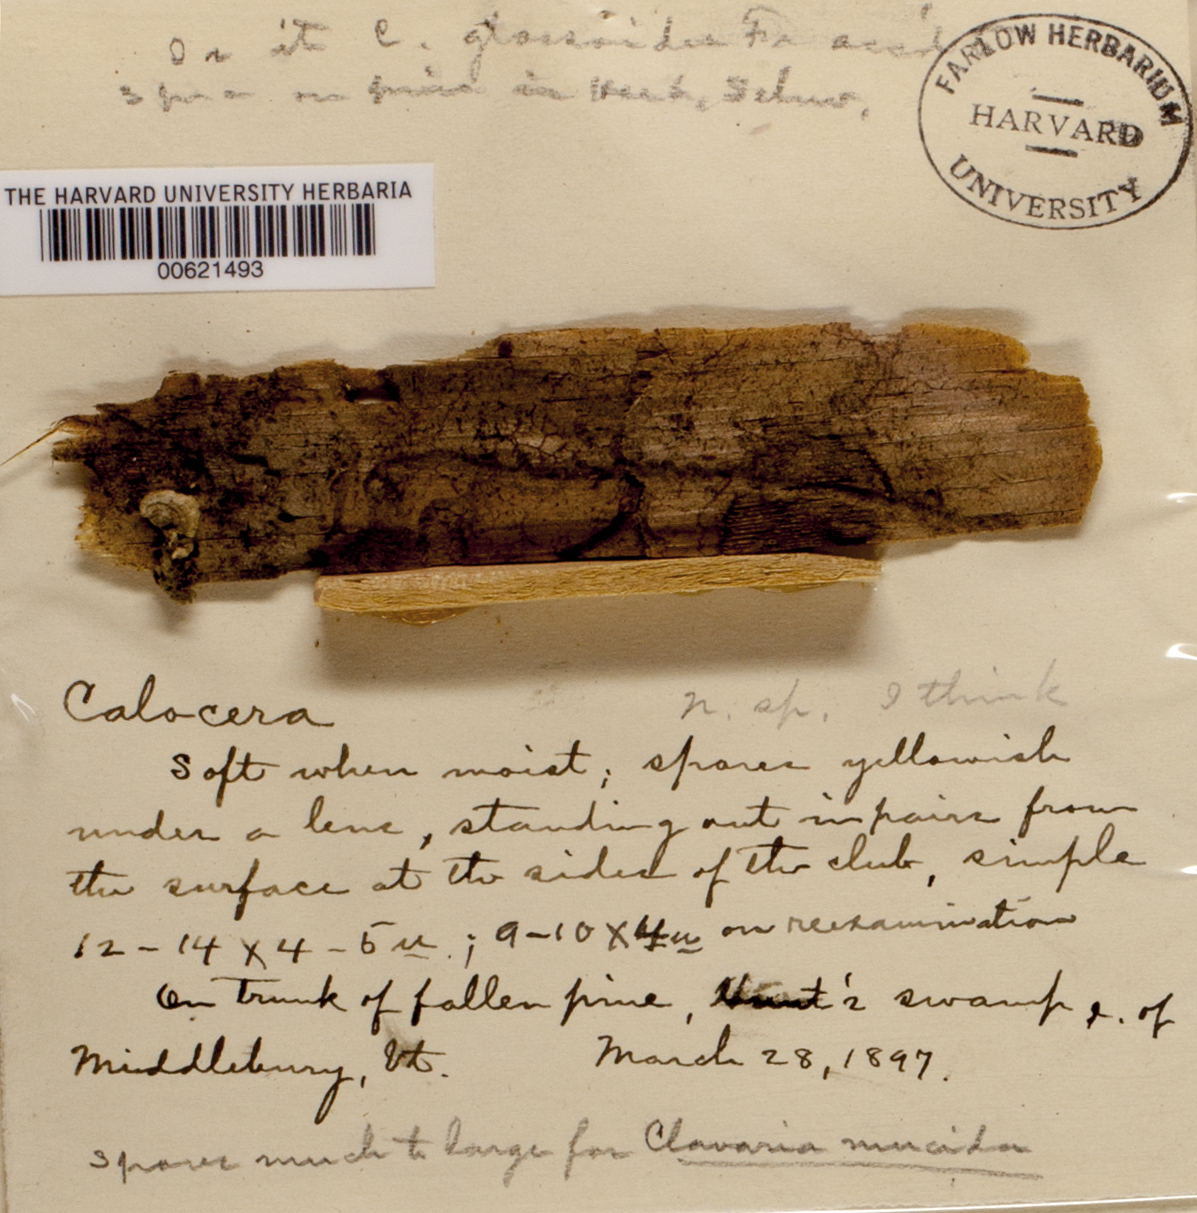 Is it C. glossoides Fr acc'd
spec. on pine in Herb. Schw.
FARLOW HERBARIUM
HARVARD
UNIVERSITY
THE HARVARD UNIVERSITY HERBARIA
00621493
Calocera n. sp. I think
Soft when moist; spores yellowish
under a lens, standing out in pairs from
the surface at the sides of the club, simple
12-14 X 4-5 u.; 9-10 X 4 u on reexamination
On trunk of fallen pine, Hunt's swamp, e. of
Middlebury, Vt. March 28, 1897.
spores much to large for Clavaria mucida